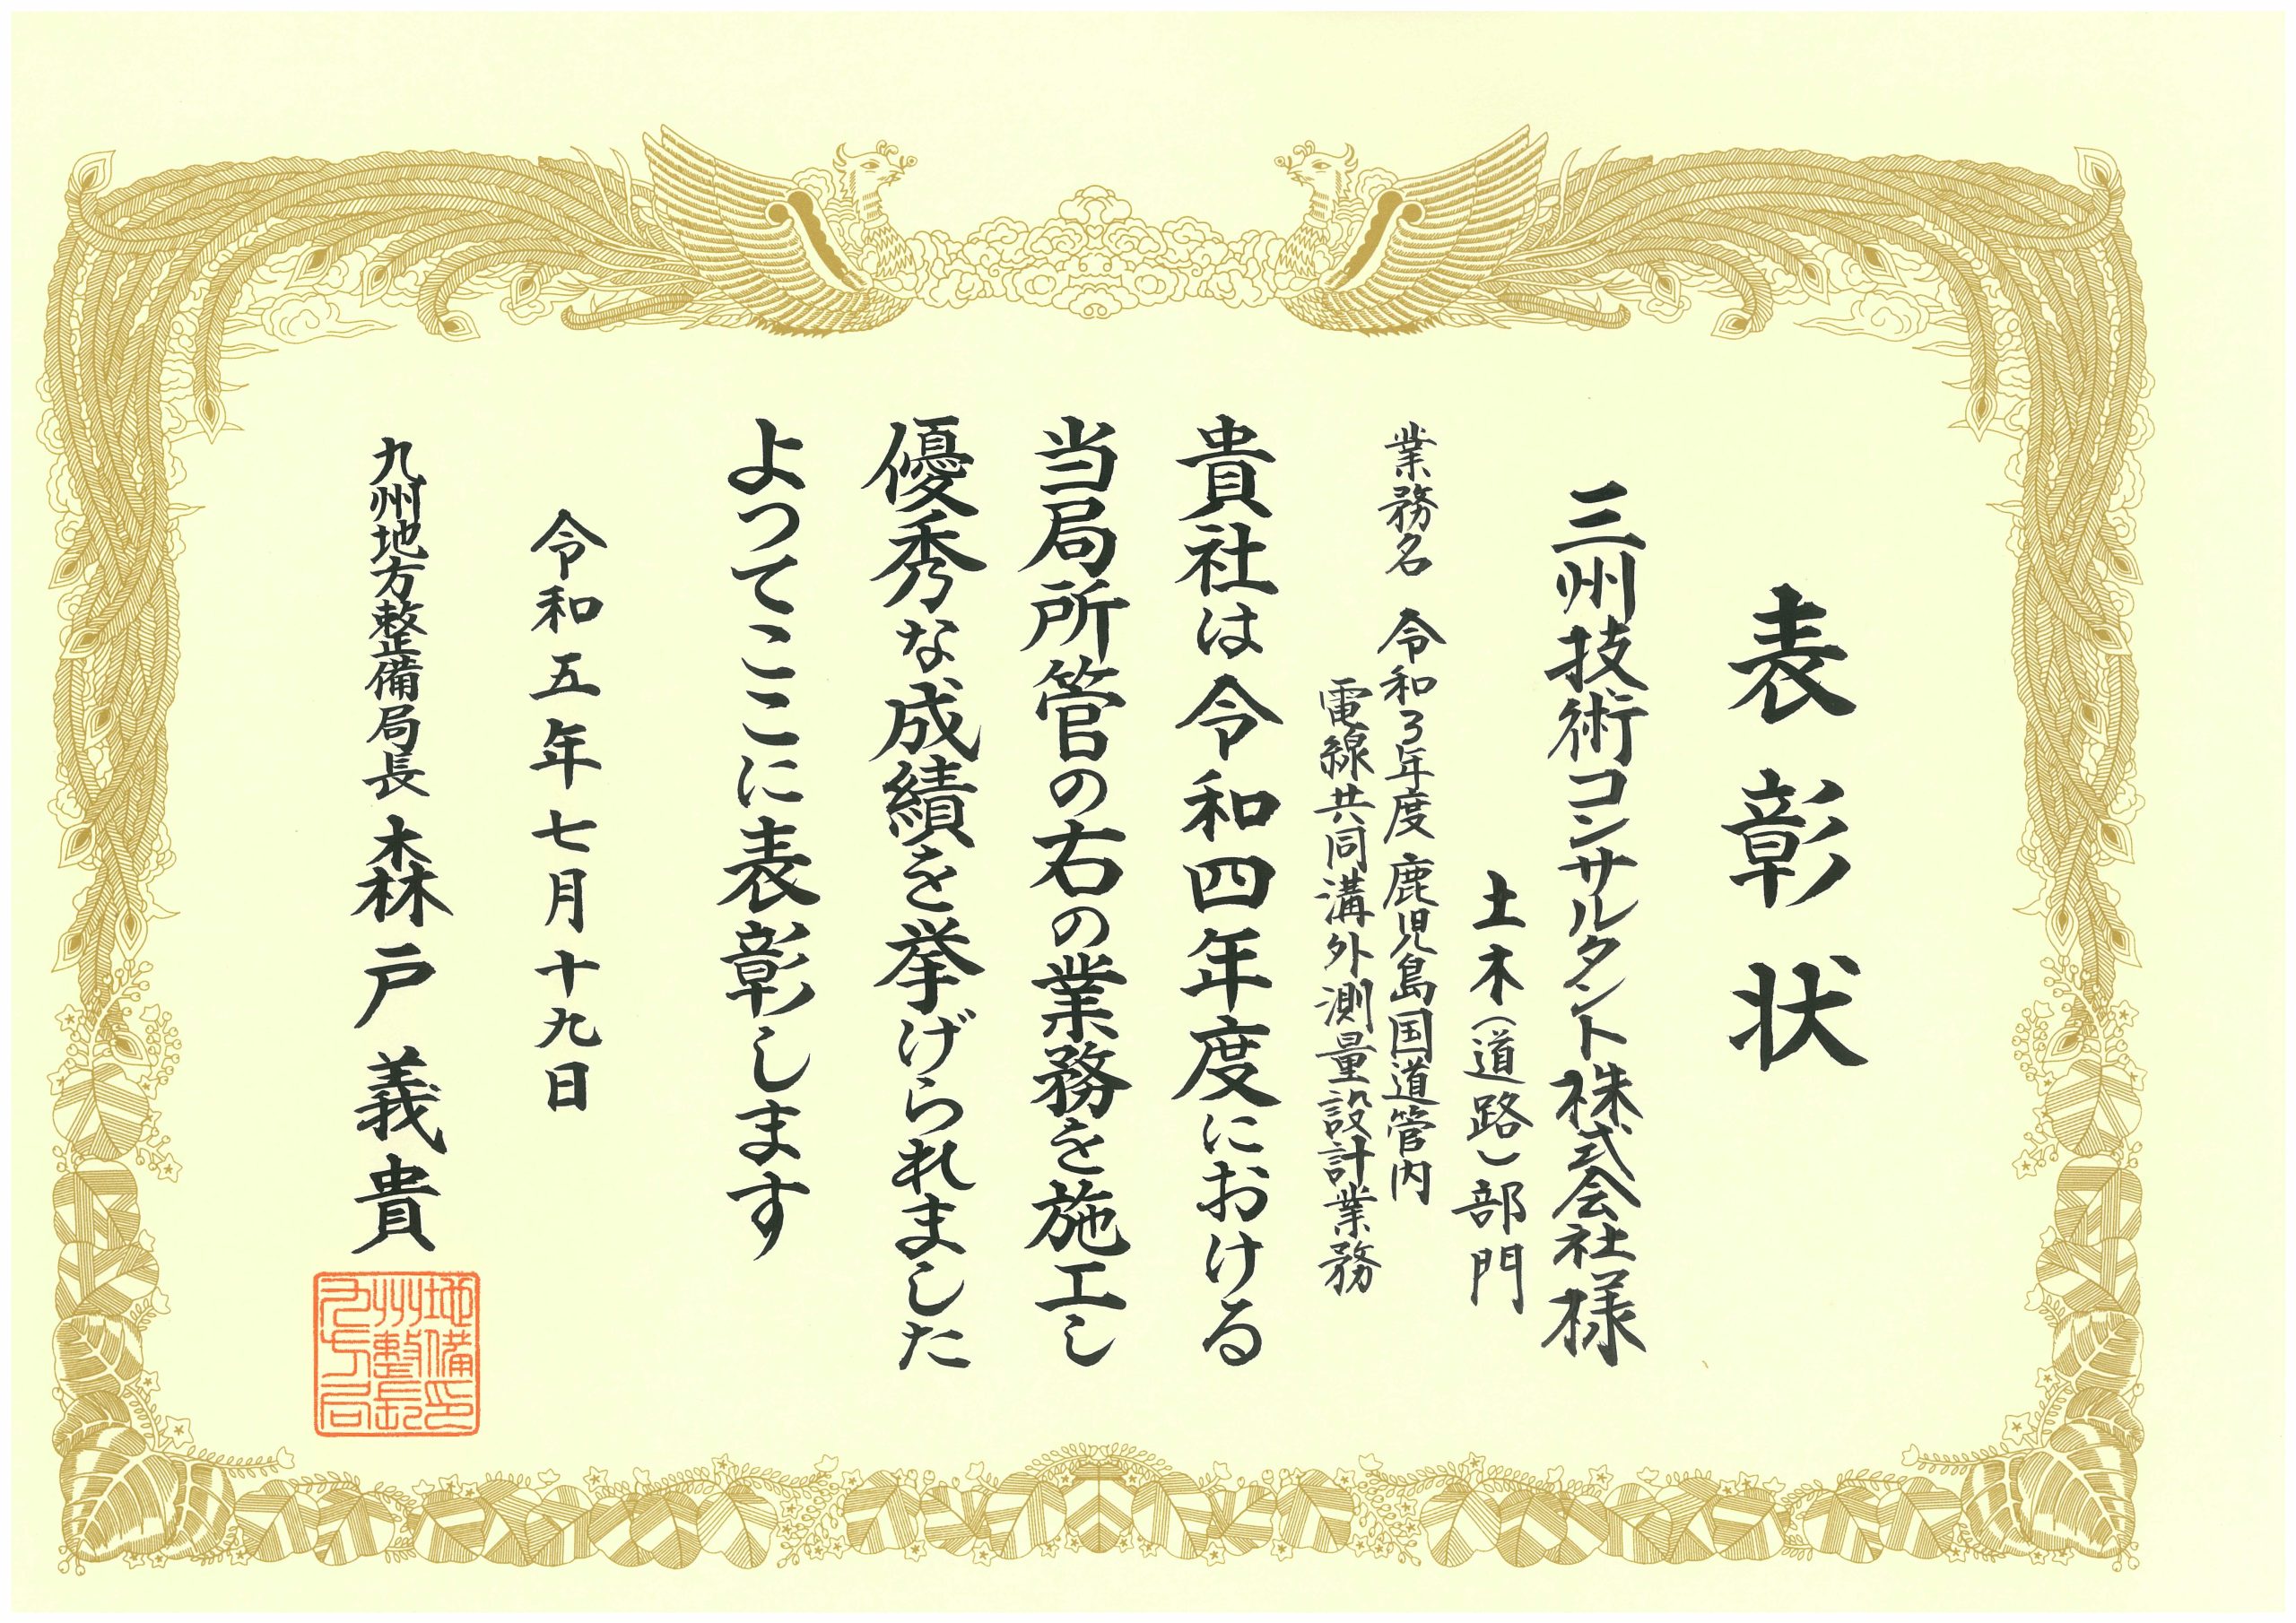 表彰状
三州技術コンサルタント株式会社様
土木（道路）部門
業務名 令和3年度 鹿児島国道管内
電線共同溝外測量設計業務
貴社は令和四年度における
当局所管の右の業務を施工し
優秀な成績を挙げられました
よつてここに表彰します
令和五年七月十九日
九州地方整備局長 森戸義貴
地備印
州整長
九方局